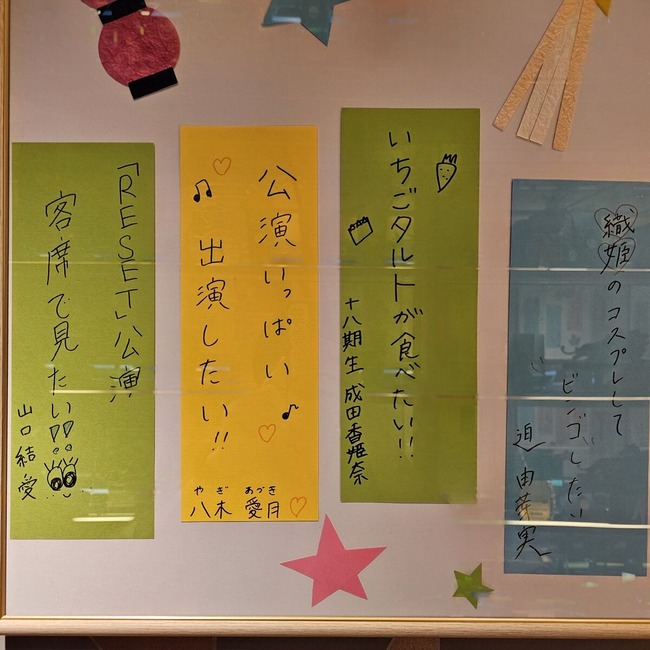 織姫のコスプレして
ビンゴしたい
迫 由芽実
いちごタルトが食べたい!!
十八期生 成田香姫奈
公演いっぱい
出演したい!!
やぎ あづき
八木 愛月
「RESET」公演
客席で見たい!!
山口結愛